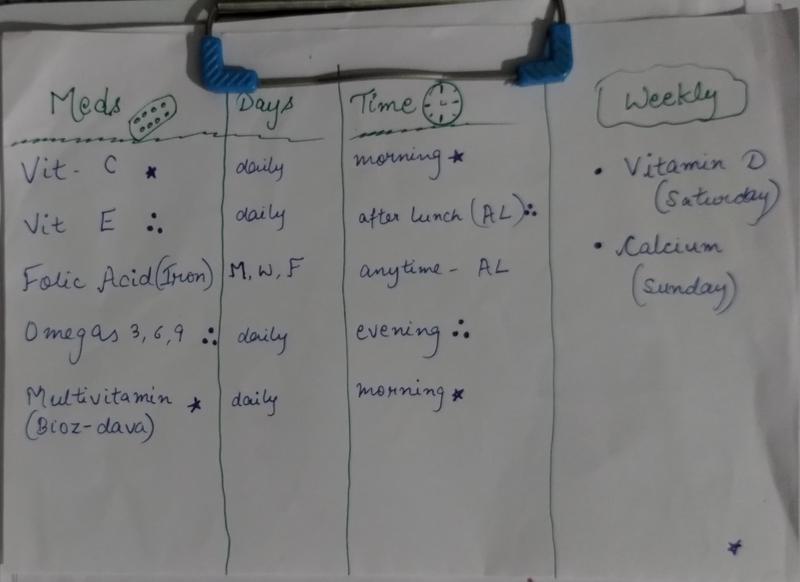 Meds Days Time Weekly
Vit- C ★ daily morning ★
Vit E ∴ daily after lunch (AL) ∴
Folic Acid (Iron) M, W, F anytime - AL
Omegas 3, 6, 9 ∴ daily evening ∴
Multivitamin ★ daily morning ★
(Bioz-dava)
• Vitamin D
(Saturday)
• Calcium
(Sunday)
★